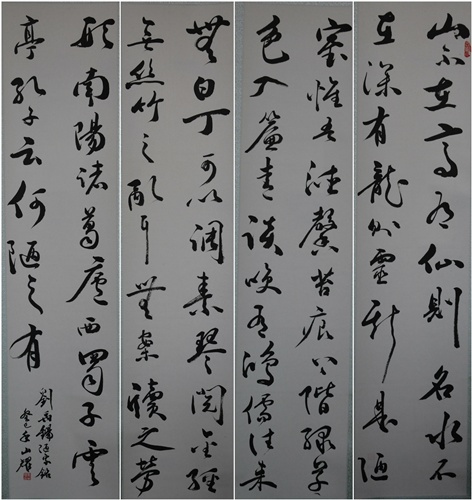 山不在高有仙則名水不
在深有龍則靈斯是陋
室惟吾德馨苔痕上階綠草
色入簾青談笑有鴻儒往來
無白丁可以調素琴閱金經
無絲竹之亂耳無案牘之勞
形南陽諸葛廬西蜀子雲
亭孔子云何陋之有
劉禹錫陋室銘
癸巳年山